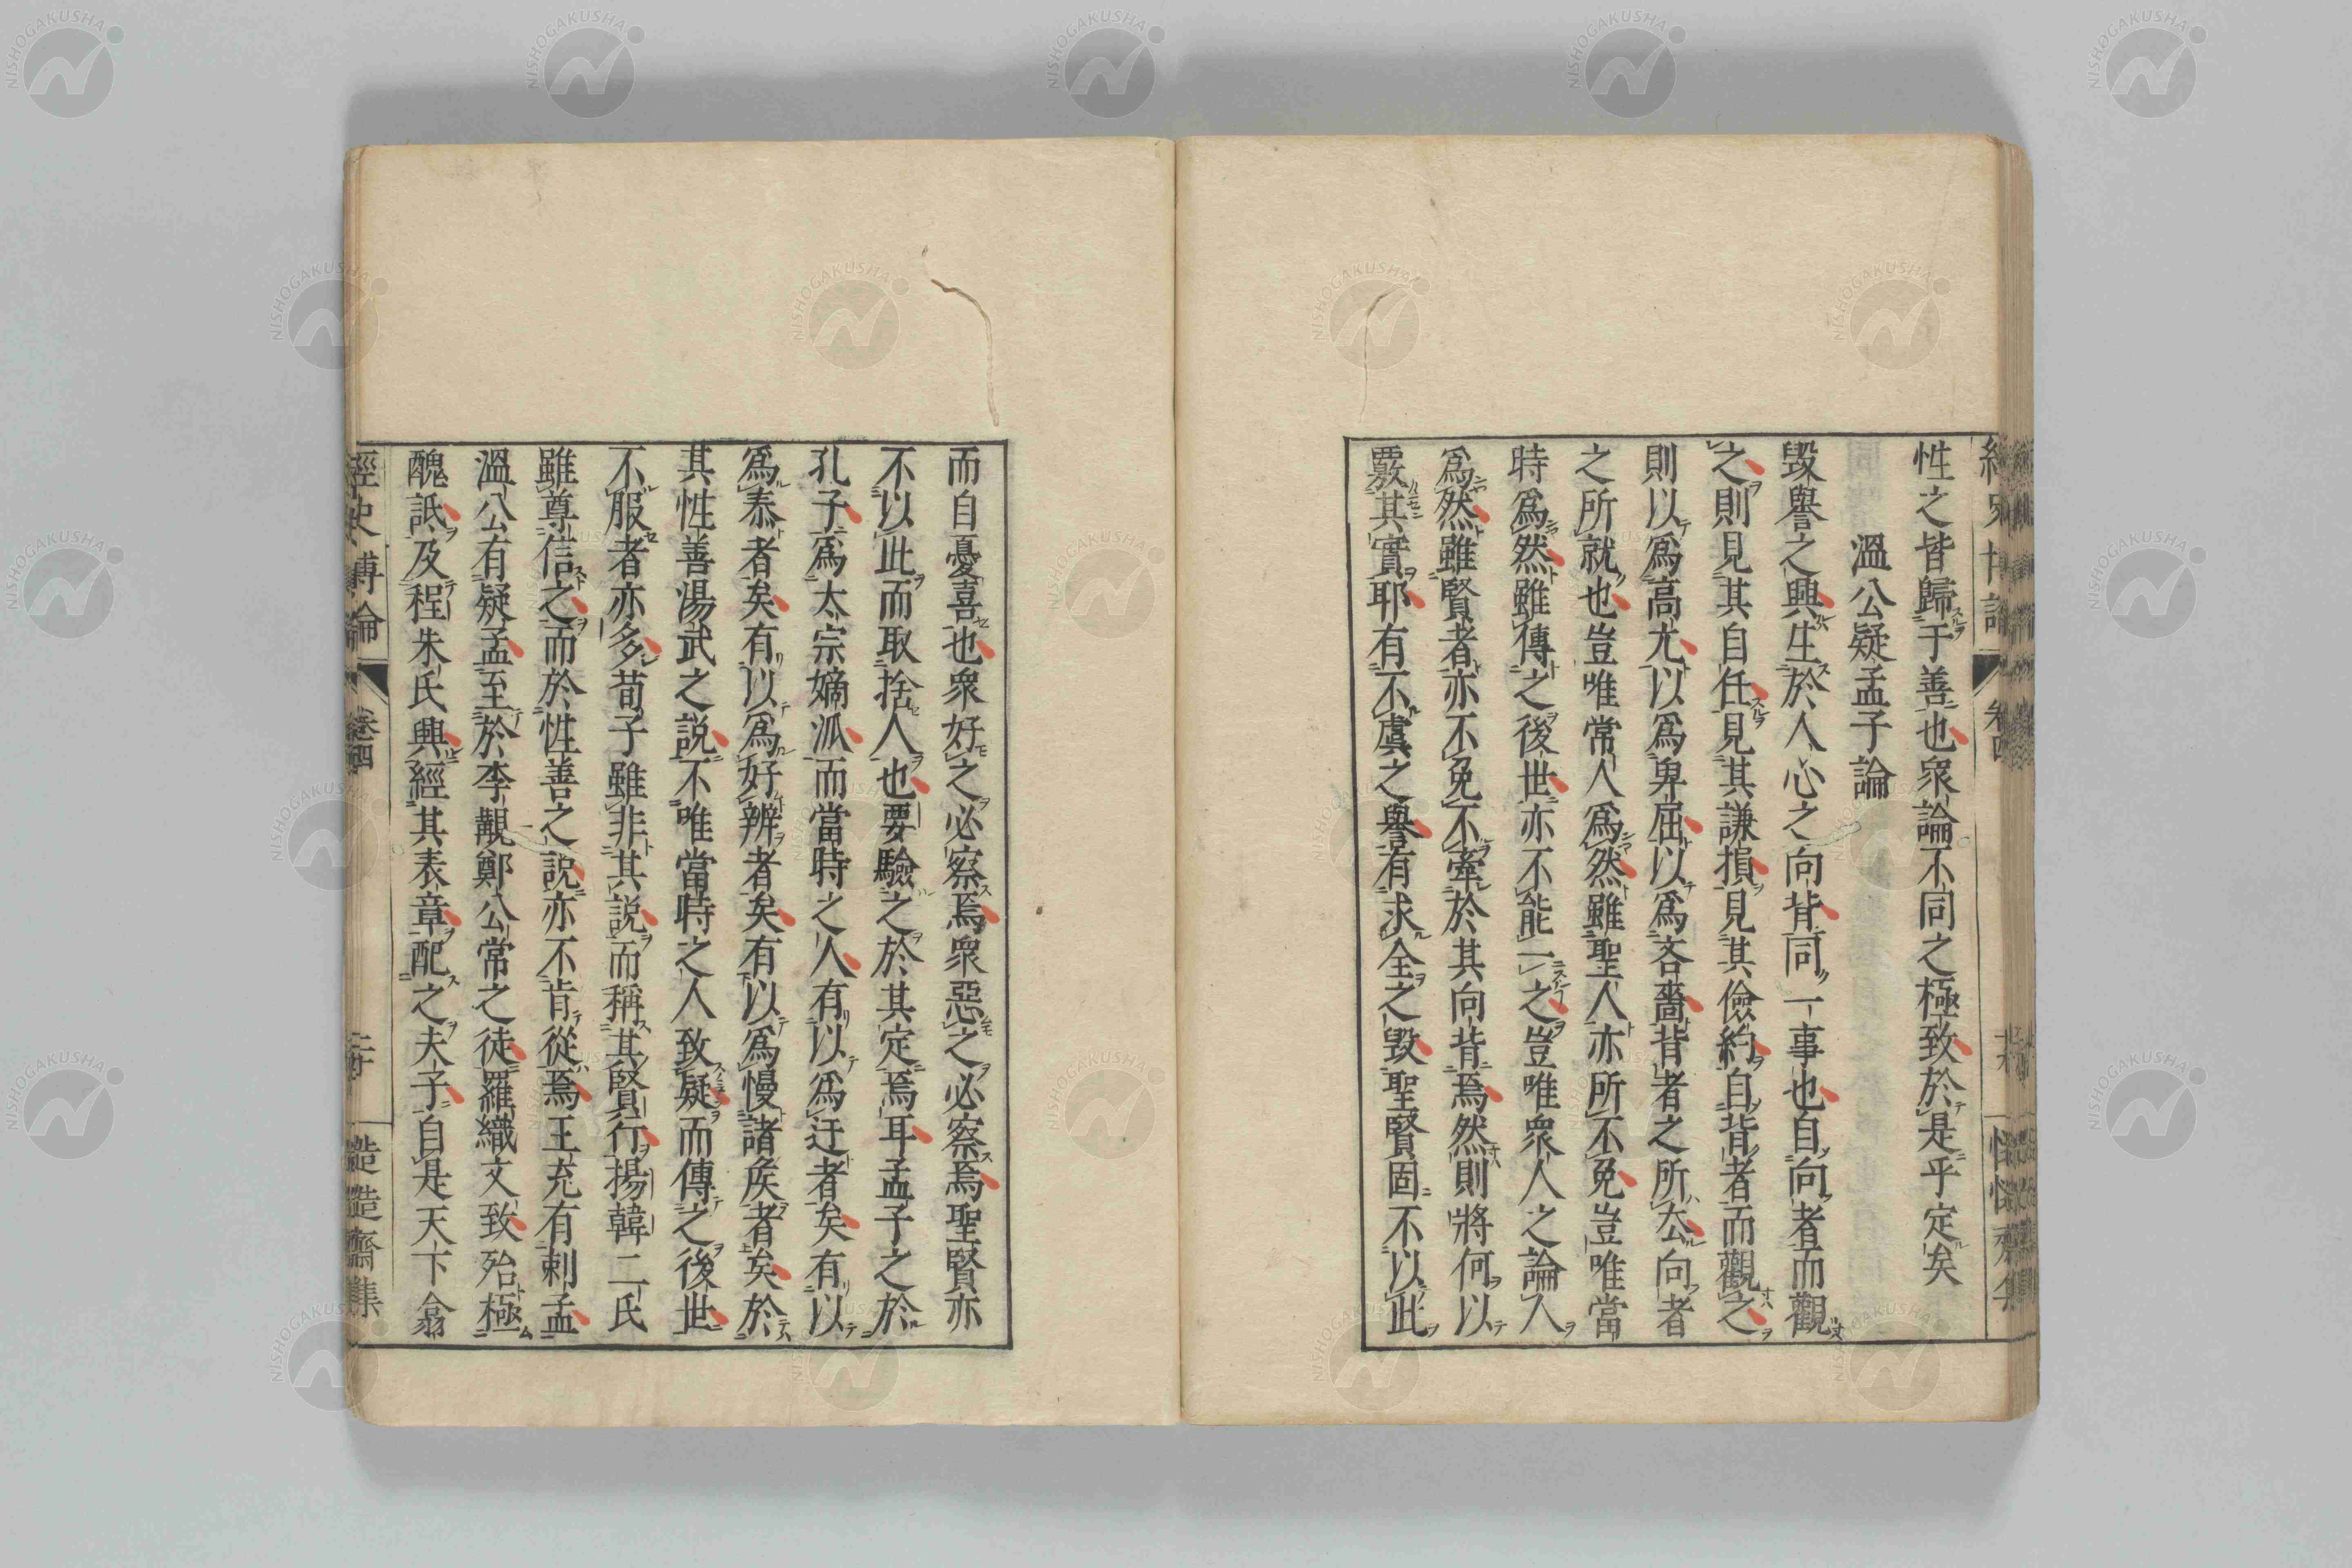 性之皆歸于善也衆論不同之極致於是乎定矣
溫公疑孟子論
毀譽之興生於人心之向背同一事也自向者而觀
之則見其自任見其謙損見其儉約自背者而觀之
則以爲高亢以爲卑屈以爲吝嗇背者之所去向者
之所就也豈唯常人爲然雖聖人亦所不免豈唯當
時爲然雖傳之後世亦不能一之豈唯衆人之論人
爲然雖賢者亦不免不牽於其向背焉然則將何以
覈其實耶有不虞之譽有求全之毀聖賢固不以此
而自憂喜也衆好之必察焉衆惡之必察焉聖賢亦
不以此而取捨人也要驗之於其定焉耳孟子之於
孔子爲太宗嫡泒而當時之人有以爲迂者矣有以
爲泰者矣有以爲好辨者矣有以爲慢諸矦者矣於
其性善湯武之説不唯當時之人致疑而傳之後世
不服者亦多荀子雖非其説而稱其賢行揚韓二氏
雖尊信之而於性善之説亦不肯從焉王充有刺孟
溫公有疑孟至於李覯鄭公常之徒羅織文致殆極
醜詆及程朱氏興經其表章配之夫子自是天下翕
經史博論 卷四 二十 慥慥齋集